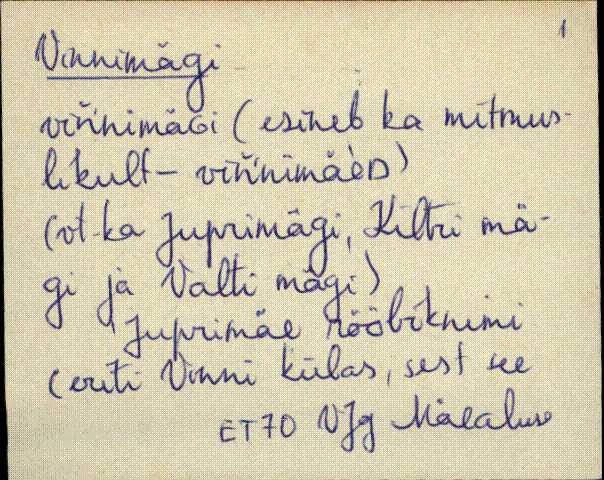 1
Vinnimägi
viń̀nimäGi (esineb ka mitmus-
likult - viń̀nimäèD)
(vt ka Juprimägi, Kiltri mä-
gi ja Valti mägi)
Juprimäe rööbiknimi
(eriti Vinni külas, sest see
ET70 VJg Mäealuse